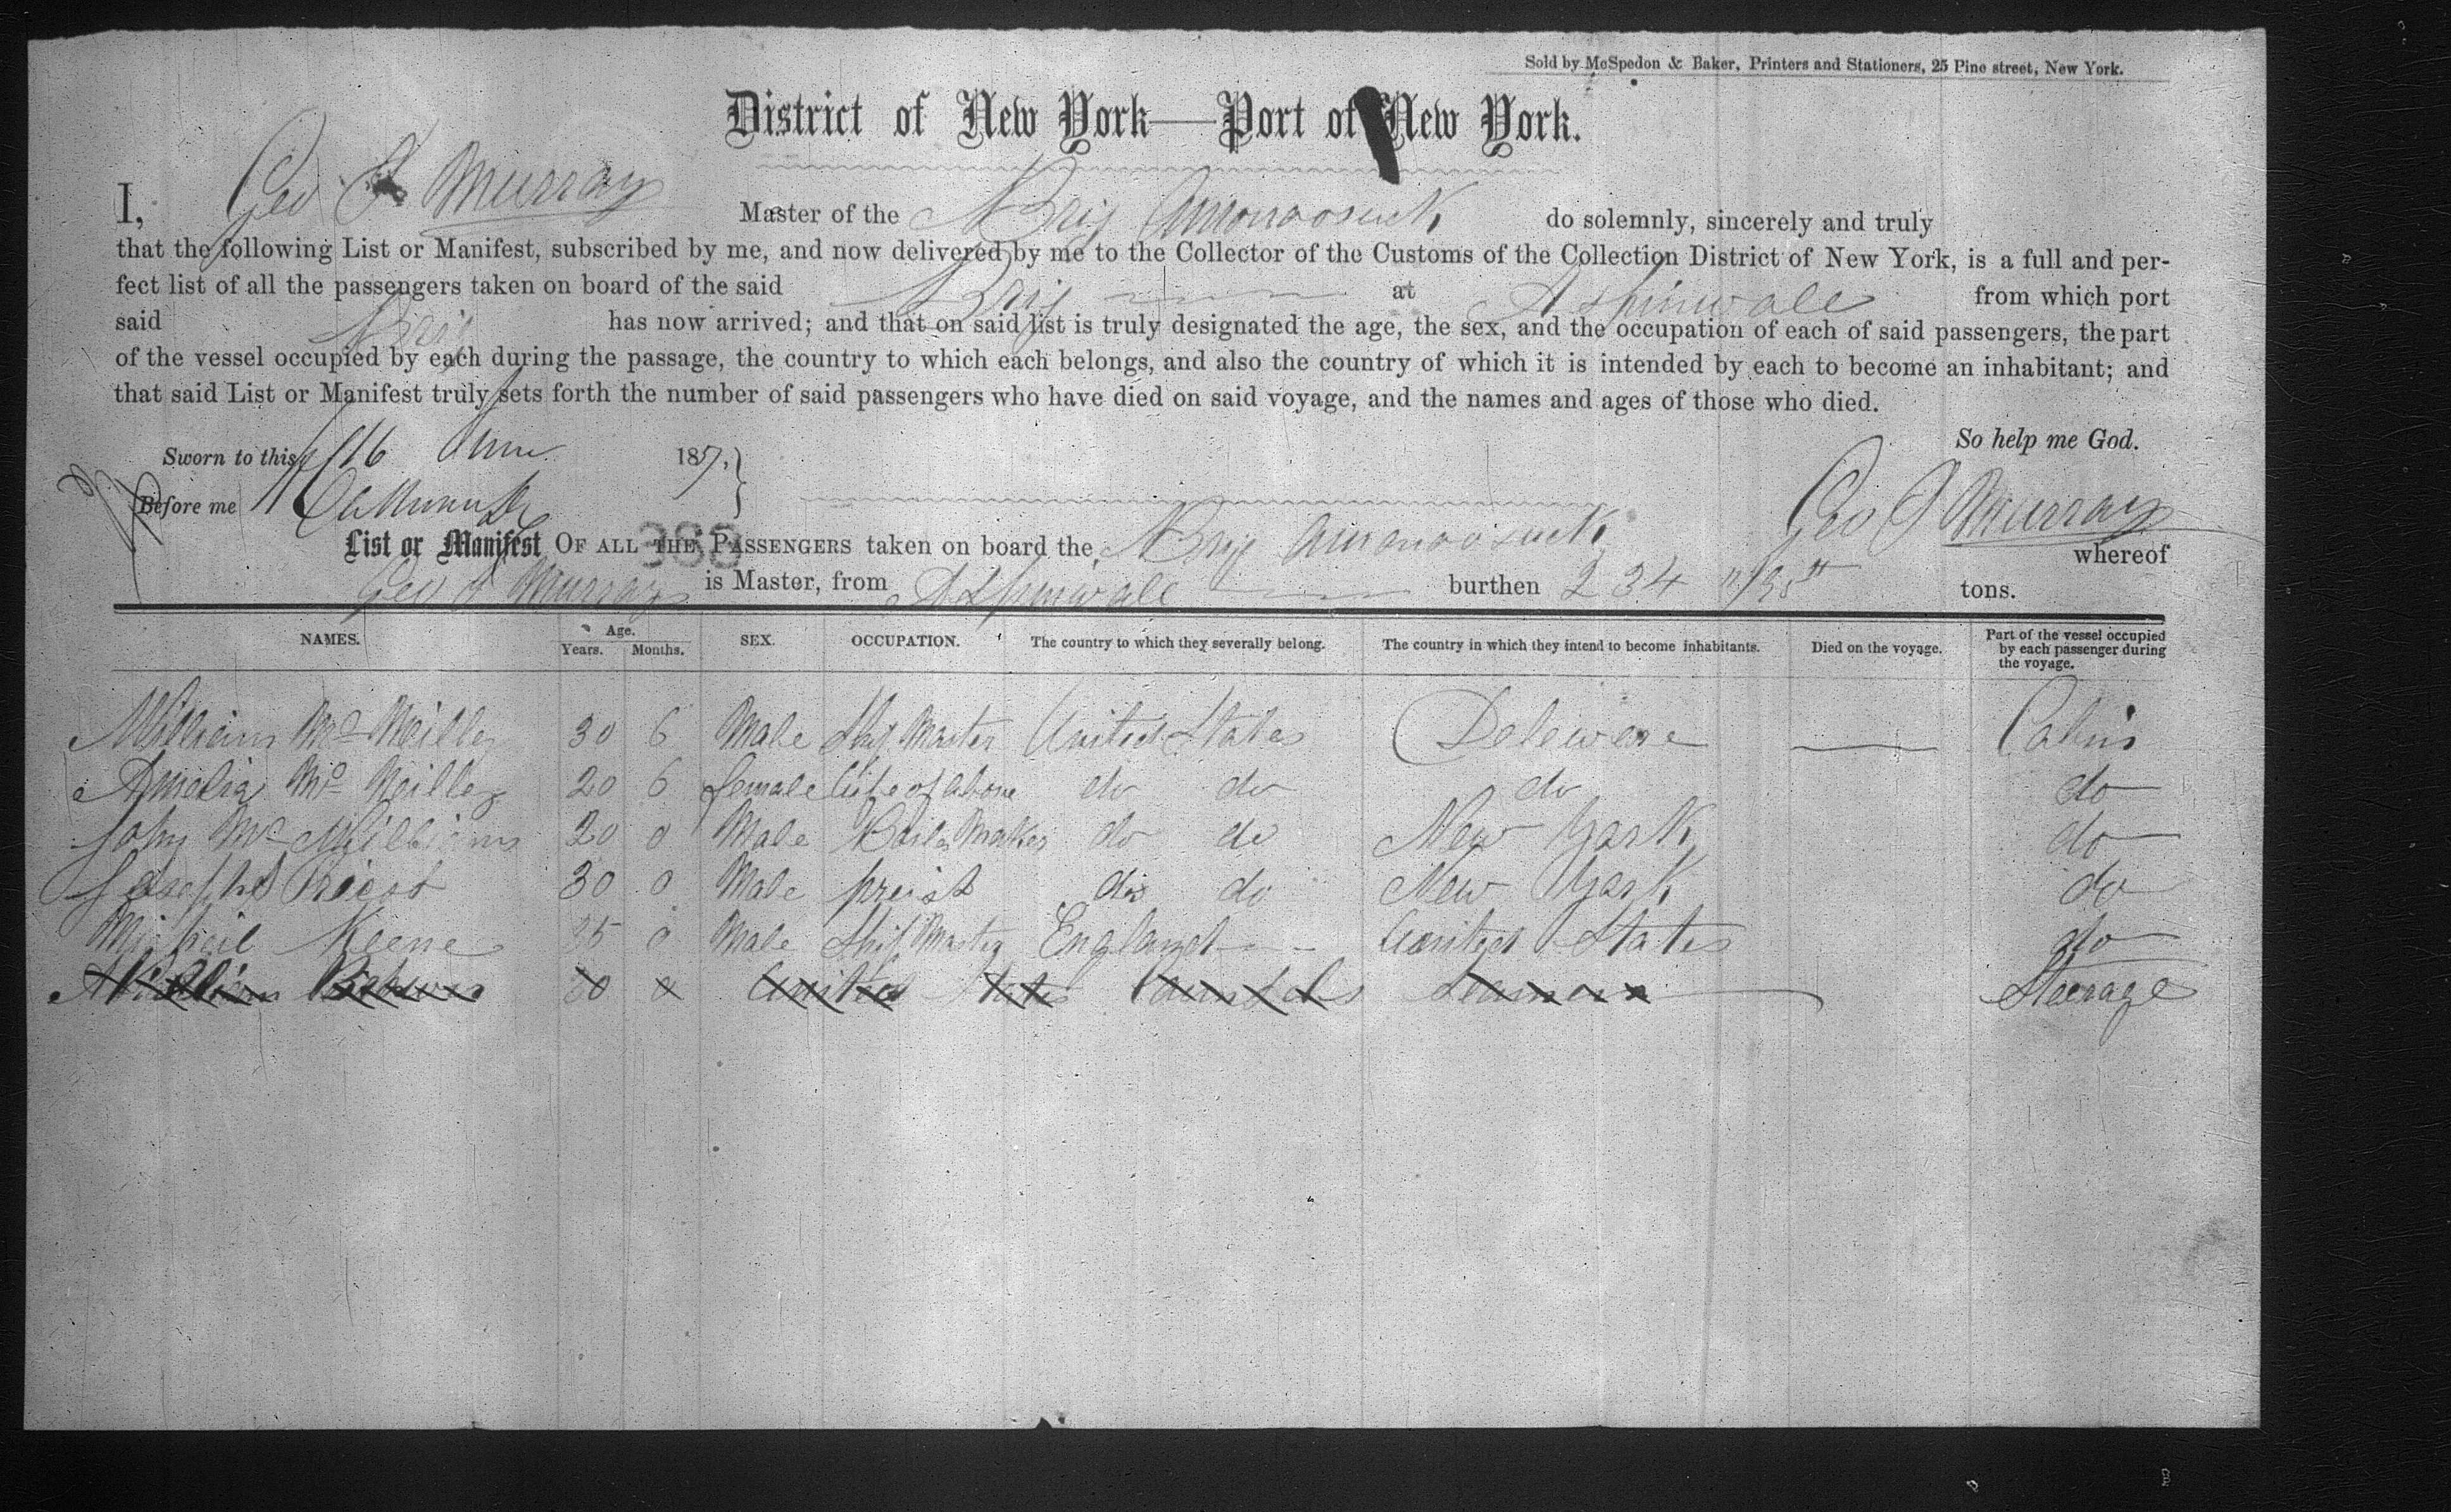 Sold by McSpedon & Baker, Printers and Stationers, 25 Pine street, New York.
District of New York—Port of New York.
I, Geo J Murray Master of the Brig Amonoosuck do solemnly, sincerely and truly
that the following List or Manifest, subscribed by me, and now delivered by me to the Collector of the Customs of the Collection District of New York, is a full and per-
fect list of all the passengers taken on board of the said Brig at Aspinwale from which port
said Brig has now arrived; and that on said list is truly designated the age, the sex, and the occupation of each of said passengers, the part
of the vessel occupied by each during the passage, the country to which each belongs, and also the country of which it is intended by each to become an inhabitant; and
that said List or Manifest truly sets forth the number of said passengers who have died on said voyage, and the names and ages of those who died.
So help me God.
Sworn to this 16 June 1857.
Before me
Geo J Murray
List or Manifest OF ALL THE PASSENGERS taken on board the Brig Amonoosuck whereof
Geo J Murray is Master, from Aspinwale burthen 234 tons.
NAMES. Age. Years. Months. SEX. OCCUPATION. The country to which they severally belong. The country in which they intend to become inhabitants. Died on the voyage. Part of the vessel occupied by each passenger during the voyage.
William Mc Neilley 30 6 Male Ship Master United States Deleware Cabin
Amelia Mc Neilley 20 6 female Wife of above do do do do
John Mc Williams 20 0 Male Boiler Maker do do New York do
Joseph 30 0 Male preist do do New York do
Micheil Keene 35 0 Male Ship Master England United States do
William Brown 30 0 United States Seamen Steerage